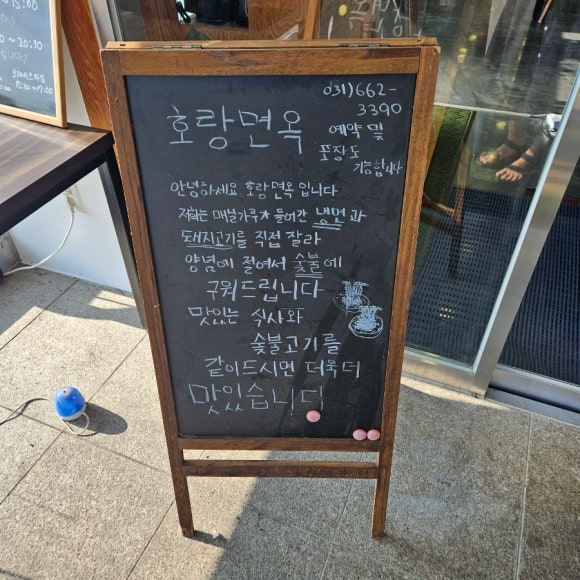 15:00
~ 20:30
브레이크타임
15:00~17:00
031)662-
3390
호랑면옥
예약 및
포장도
가능합니다
안녕하세요 호랑면옥 입니다
저희는 메밀가루가 들어간 냉면과
돼지고기를 직접 잘라
양념에 절여서 숯불에
구워드립니다
맛있는 식사와
숯불고기를
같이드시면 더욱더
맛있습니다